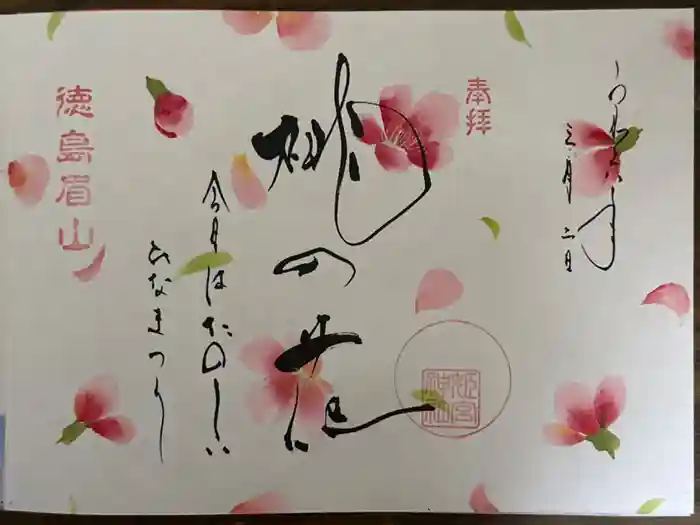 奉拝
令和六年
三月二日
桃の花
今月はたのしい
ひなまつり
徳島眉山
姫宮神社